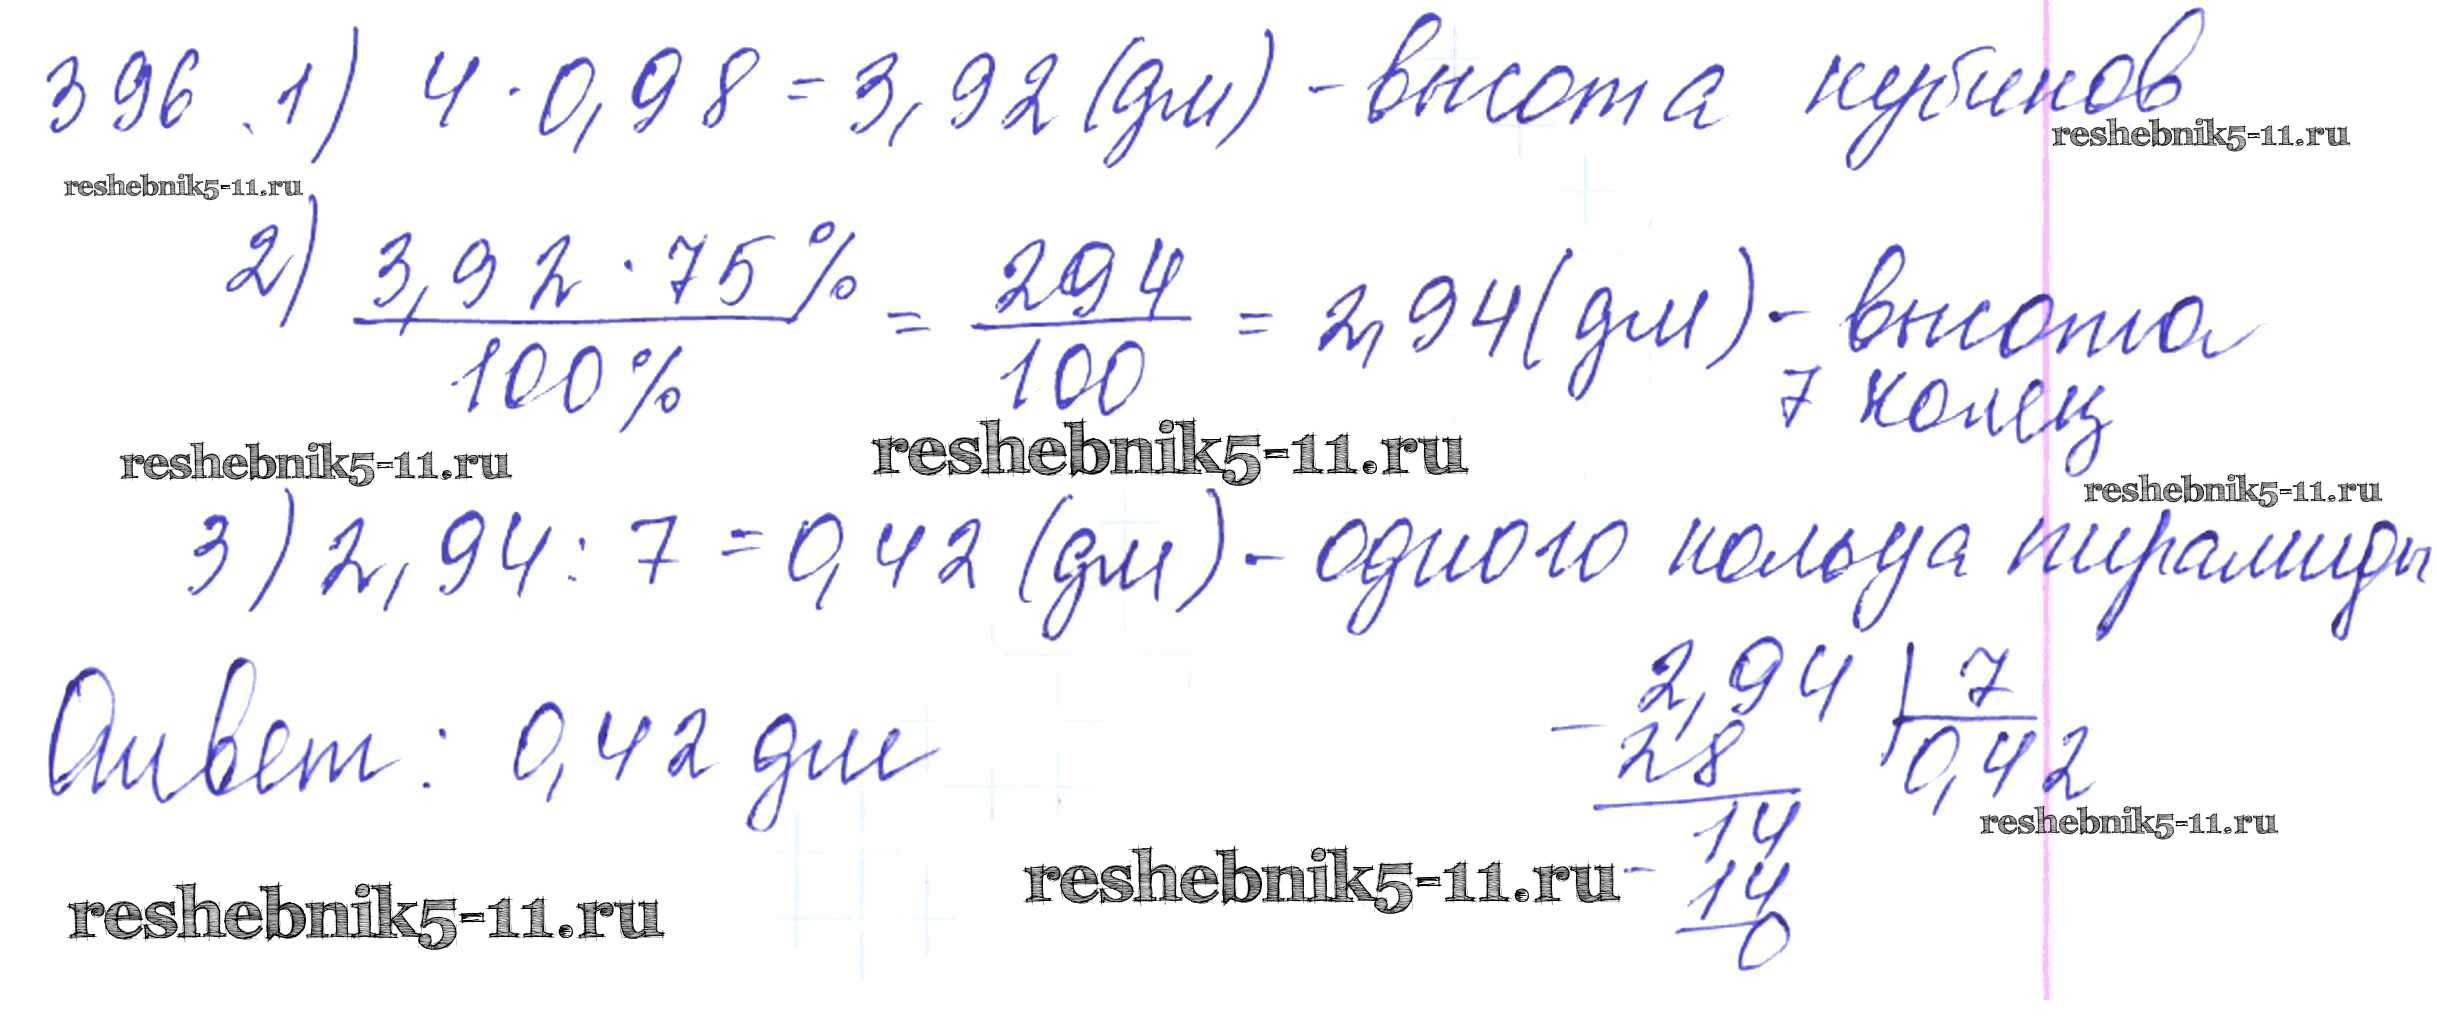 396. 1) 4 · 0,98 = 3,92 (дм) - высота кубиков
reshebnik5-11.ru
reshebnik5-11.ru
2) 3,92 · 75% / 100% = 294 / 100 = 2,94 (дм) - высота
7 колец
reshebnik5-11.ru
reshebnik5-11.ru
reshebnik5-11.ru
3) 2,94 : 7 = 0,42 (дм) - одного кольца пирамиды
2,94 | 7
- 28 | 0,42
14
- 14
0
Ответ: 0,42 дм
reshebnik5-11.ru
reshebnik5-11.ru
reshebnik5-11.ru